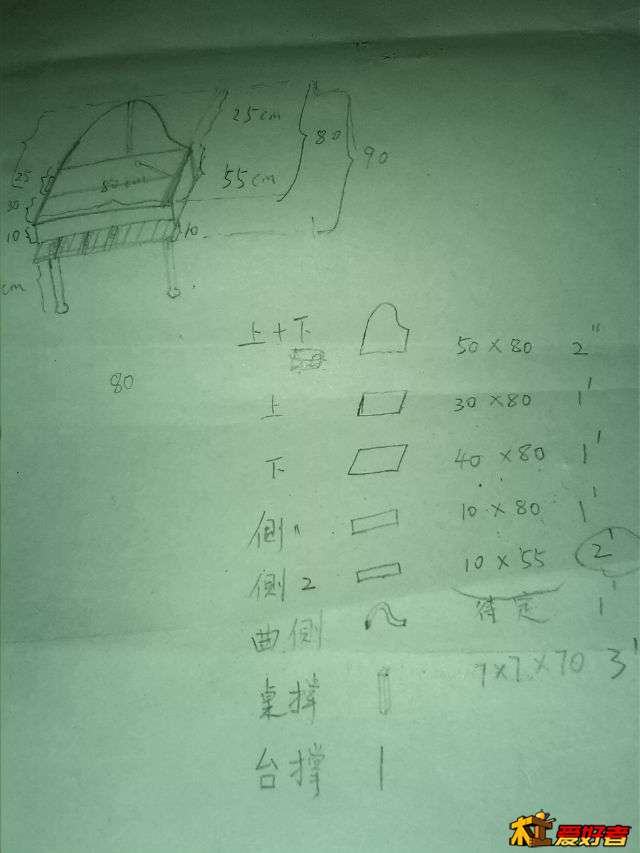 25cm
80
90
25
80cm
55cm
30
10
10
cm
上+下 50×80 2"
80
上 30×80 1'
下 40×80 1'
侧1 10×80 1'
侧2 10×55 2'
曲侧 待定 1'
桌撑 7×7×70 3'
台撑
木工爱好者